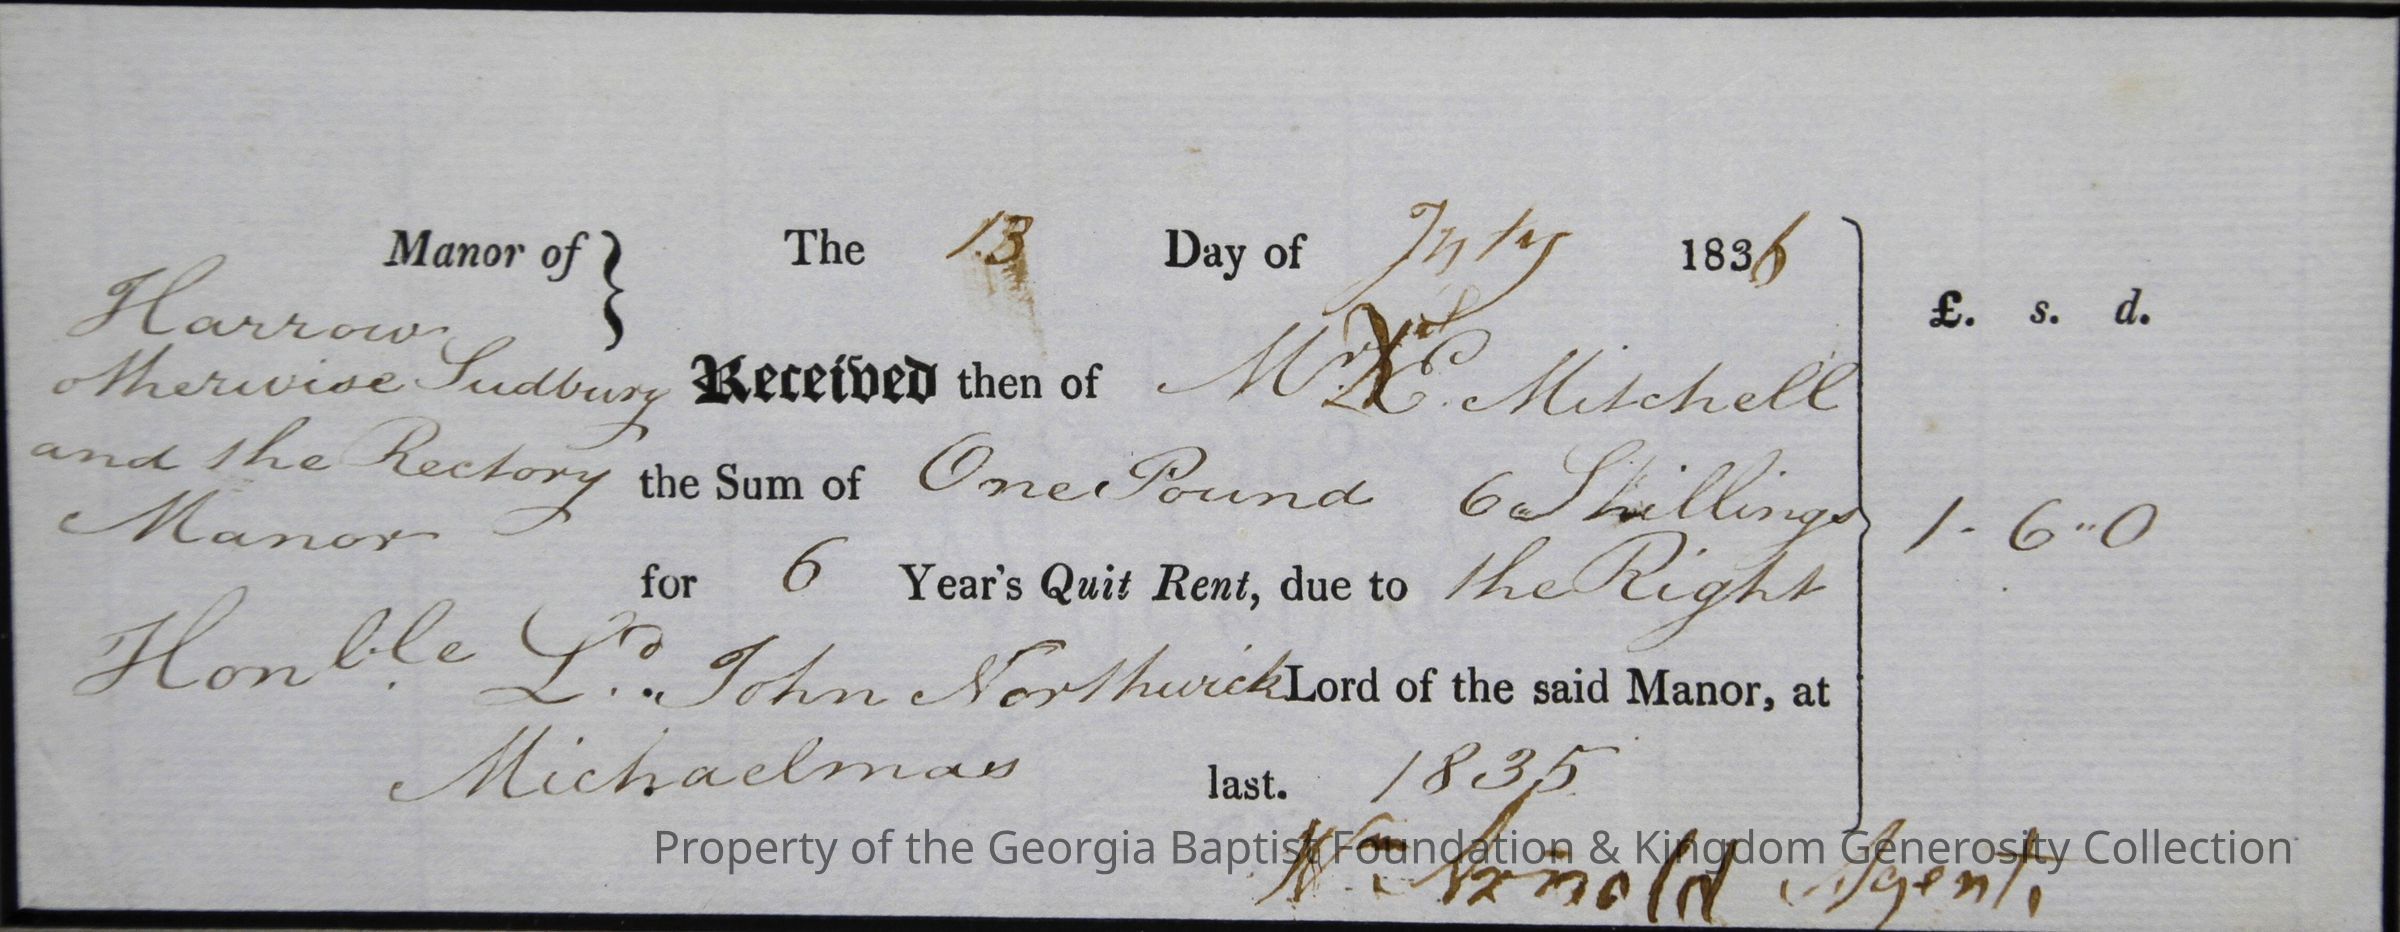 Manor of } The 13 Day of July 1836
Harrow £. s. d.
otherwise Sudbury Received then of Mr E. Mitchell
and the Rectory the Sum of One Pound 6 Shillings 1 - 6 " 0
Manor
for 6 Year's Quit Rent, due to the Right
Honble. Ld. John Northwick Lord of the said Manor, at
Michaelmas last. 1835
Wm Arnold Agent.
Property of the Georgia Baptist Foundation & Kingdom Generosity Collection